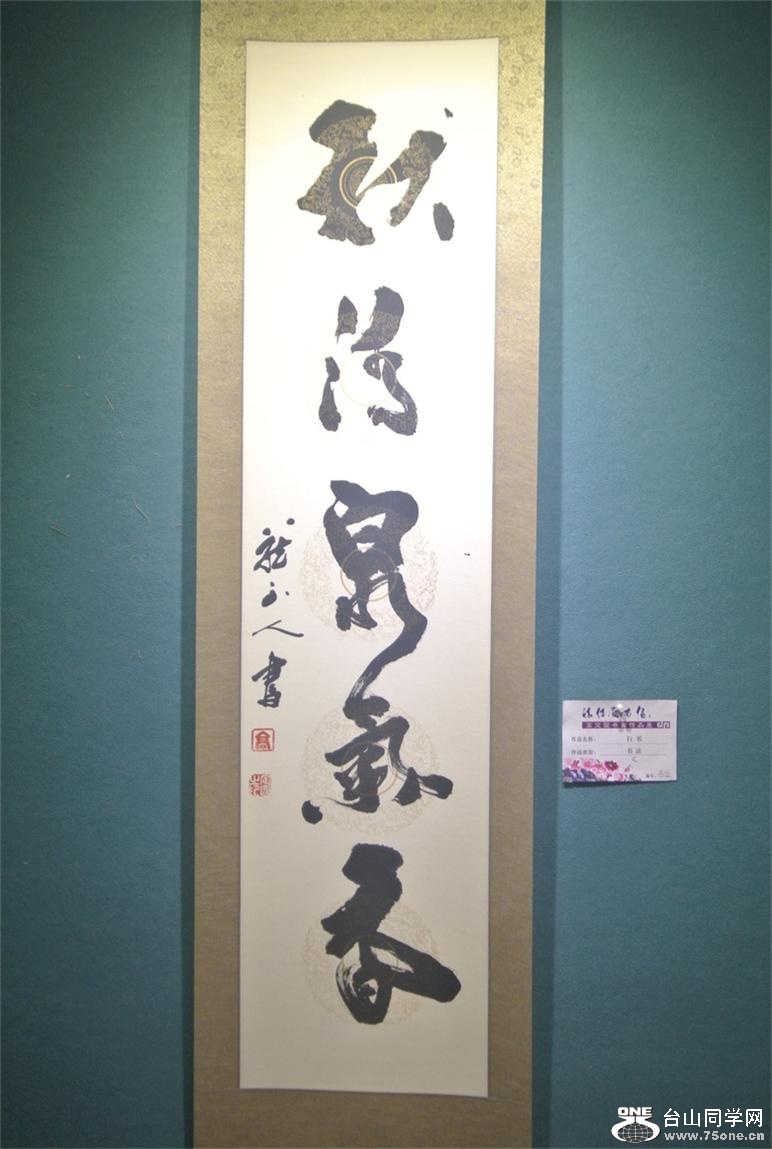 秋清泉氣香
龍人書
作品名称: 行书
作品类型: 书法
编号:
ONE 台山同学网
www.75one.cn